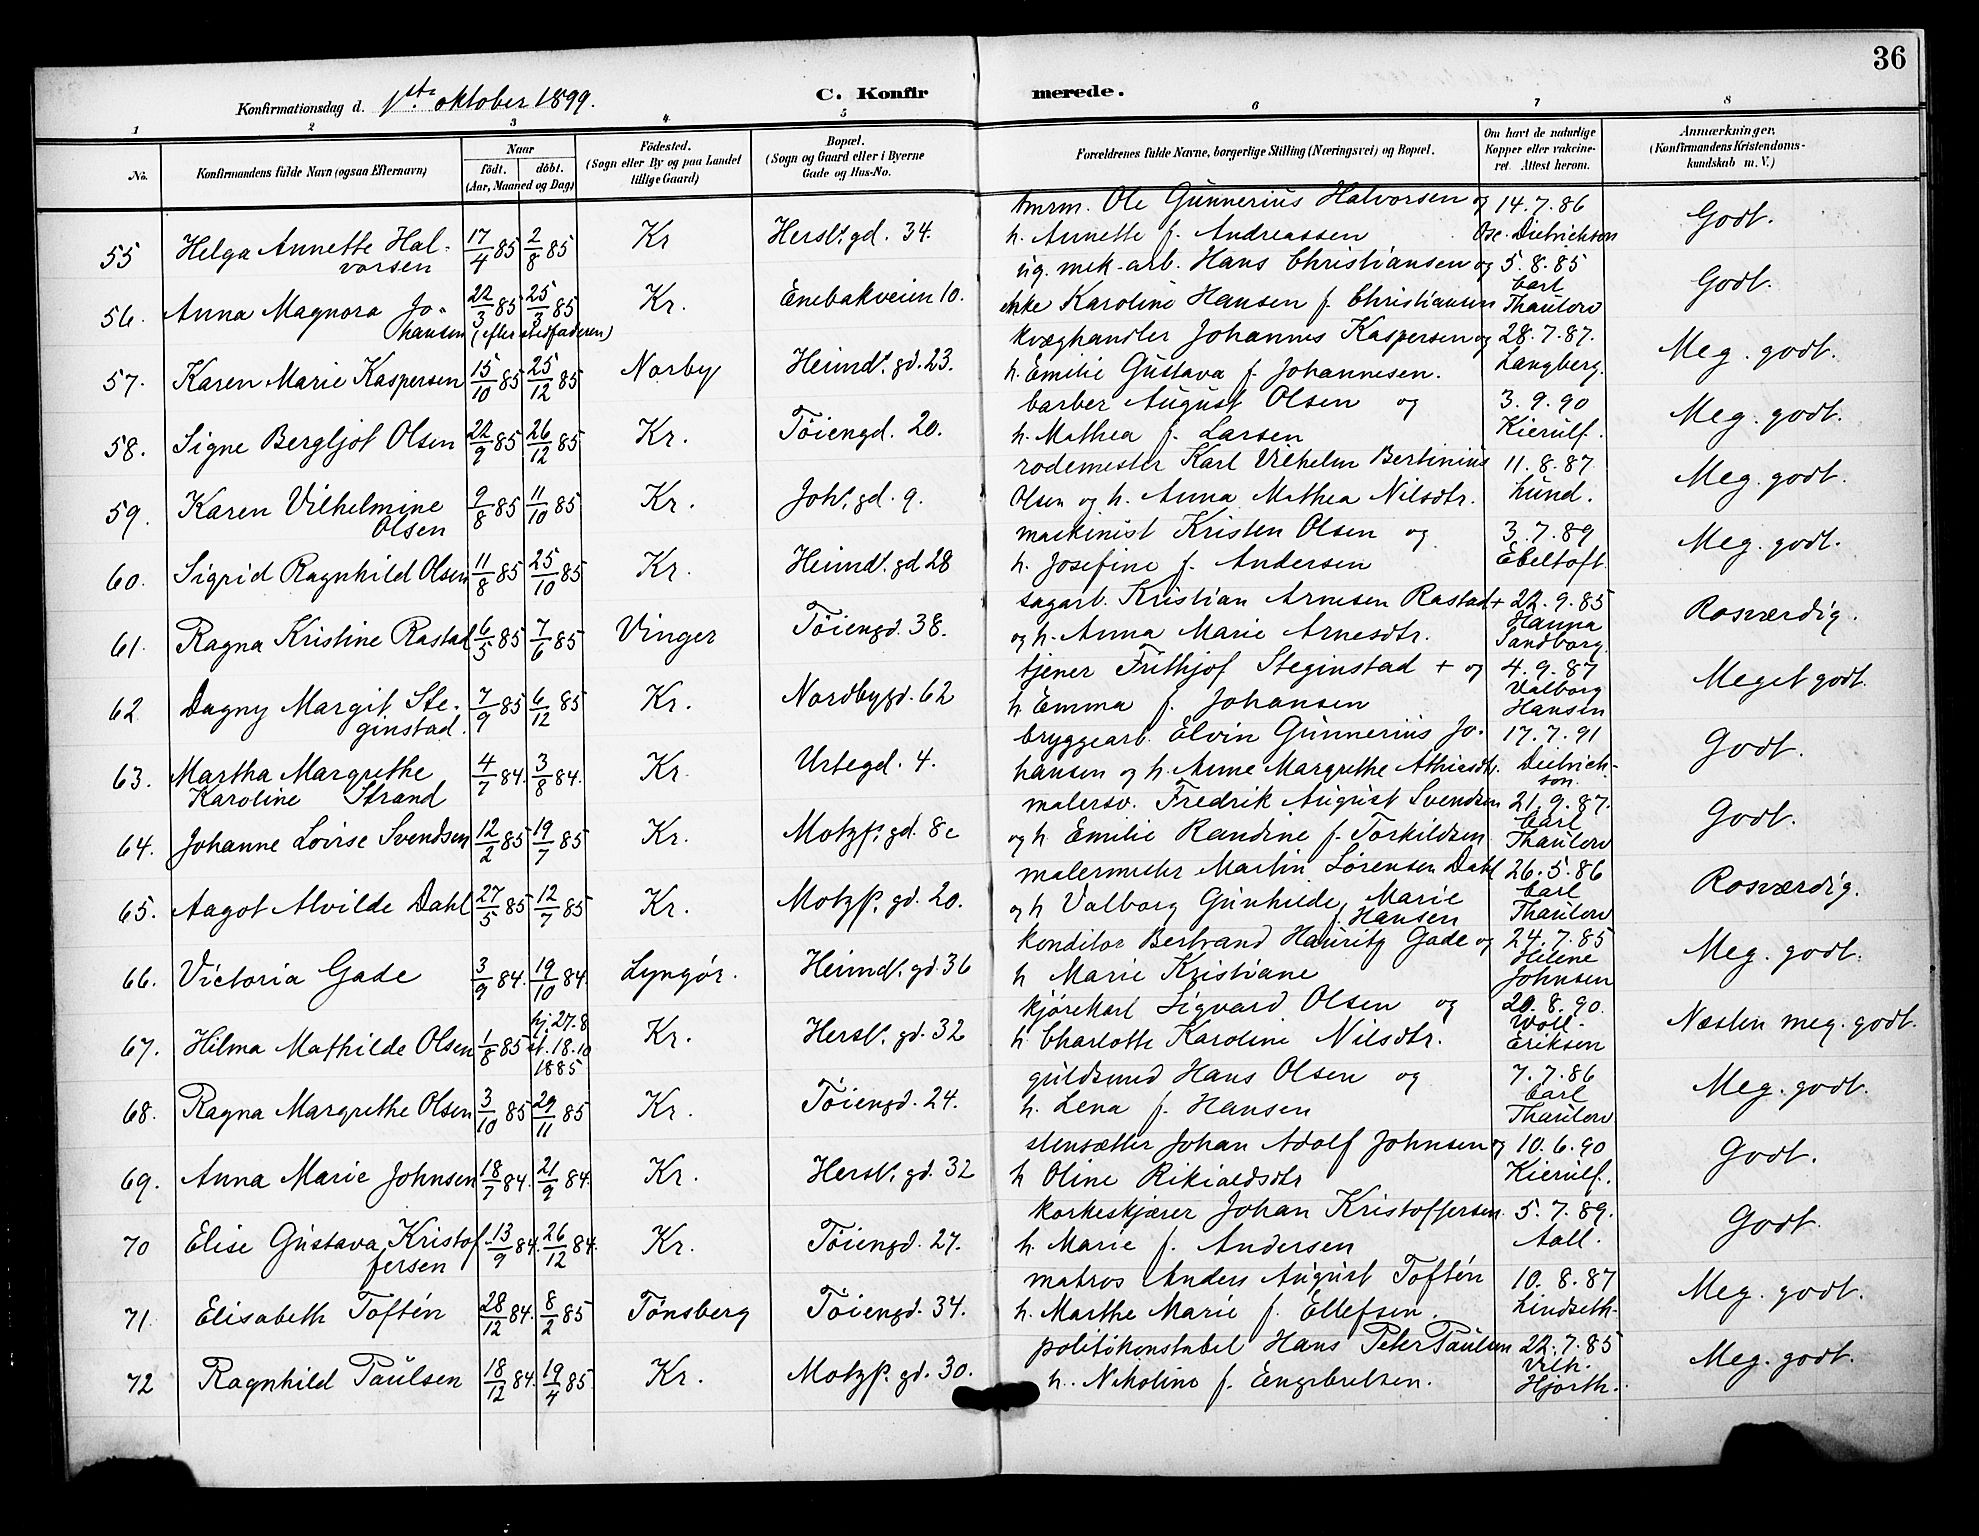 36
Konfirmationsdag d. 1ste oktober 1899. C. Konfirmerede.
1 2 3 4 5 6 7 8
No. Konfirmandens fulde Navn (ogsaa Efternavn) Naar født. døbt. (Aar, Maaned og Dag) Fødested. (Sogn eller By og paa Landet tillige Gaard) Bopæl. (Sogn og Gaard eller i Byerne Gade og Hus-No. Forældrenes fulde Navne, borgerlige Stilling (Næringsvei) og Bopæl. Om havt de naturlige Kopper eller vakcineret. Attest herom. Anmærkninger. (Konfirmandens Kristendomskundskab m. V.)
55 Helga Annette Halvorsen 17/4 85 2/8 85 Kr Hersl. gd. 34. tmrm. Ole Gunnerius Halvorsen og h. Annette f. Andreassen 14.7.86 Dietrichson Godt.
56. Anna Magnora Johansen (efter stedfaderen) 22/3 85 25/3 85 Kr. Enebakveien 10. ug. mek. arb. Hans Christiansen og enke Karoline Hansen f. Christiansen 5.8.85 Carl Thaulow Godt.
57. Karen Marie Kaspersen 15/10 85 25/12 85 Norby Heimd. gd. 23. kvæghandler Johannes Kaspersen og h. Emilie Gustava f. Johannesen. 28.7.87. Langberg. Meg. godt.
58. Signe Bergljot Olsen 22/9 85 26/12 85 Kr. Tøiengd. 20. barber August Olsen og h. Mathea f. Larsen 3.9.90 Kierulf. Meg. godt.
59. Karen Vilhelmine Olsen 9/8 85 11/10 85 Kr. Joh. gd. 9. rodemester Karl Vilhelm Bertinius Olsen og h. Anna Mathea Nilsdtr. 11.8.87. Lund. Meg. godt.
60. Sigrid Ragnhild Olsen 11/8 85 25/10 85 Kr. Heimd. gd 28 maskinist Kristen Olsen og h. Josefine f. Andersen 3.7.89 Ebeltoft. Meg. godt.
61. Ragna Kristine Rastad 6/5 85 7/6 85 Vinger Tøiengd. 38. sagarb. Kristian Arnesen Rastad + og h. Anna Marie Arnesdtr. 22.9.85 Hanna Sandborg. Rosværdig.
62 Dagny Margit Steginstad. 7/9 85 6/12 85 Kr. Nordbygd. 62 tjener Frithjof Steginstad + og h. Emma f. Johansen 4.9.87 Valborg Hansen Meget godt.
63. Martha Margrethe Karoline Strand 4/7 84. 3/8 84. Kr. Urtegd. 4. bryggearb. Elvin Gunnerius Johansen og h. Anne Margrethe 17.7.91 Dietrichson. Godt.
64. Johanne Lovise Svendsen 12/2 85 19/7 85 Kr. Motzf. gd. 8c malersv. Fredrik August Svendsen og h. Emilie Randine f. Torkildsen 21.9.87. Carl Thaulow Godt.
65. Aagot Alvilde Dahl 27/5 85 12/7 85 Kr. Motzf. gd. 20. malermester Martin Sørensen Dahl og h Valborg Gunhilde Marie f. Hansen 26.5.86 Carl Thaulow Rosværdig.
66. Victoria Gade 3/9 84. 19/10 84. Lyngør. Heimd. gd. 36 konditor Bertrand Hauritz Gade og h Marie Kristiane 24.7.85 Helene Johnsen Meg. godt.
67. Hilma Mathilde Olsen 1/8 85 hj. 27.8 st. 18.10 1885 Kr. Hersl. gd. 32 kjørekarl Sigvard Olsen og h. Charlotte Karoline Nilsdtr. 20.8.90. Eriksen Næsten meg. godt.
68. Ragna Margrethe Olsen 3/10 85 29/11 85 Kr. Tøiengd. 24. guldsmed Hans Olsen og h. Lena f. Hansen 7.7.86 Carl Thaulow Meg. godt.
69. Anna Marie Johnsen 18/7 84. 21/9 84. Kr. Hersl. gd. 32 stensætter Johan Adolf Johnsen og h Oline 10.6.90 Kierulf. Godt.
70 Elise Gustava Kristoffersen 13/9 84. 26/12 84. Kr. Tøiengd. 27. korkeskjærer Johan Kristoffersen h. Marie f. Andersen 5.7.89. Aall. Godt.
71. Elisabeth Toftén 28/12 84. 8/2 85 Tønsberg Tøiengd. 34. matros Anders August Toftén h. Marthe Marie f. Ellefsen. 10.8.87 Lindseth. Meg. godt.
72 Ragnhild Paulsen 18/12 84. 19/4 85. Kr. Motzf. gd. 30. politikonstabel Hans Peter Paulsen h. Nikoline f. Engebretsen. 22.7.85 Vilh. Hjorth. Meg. godt.